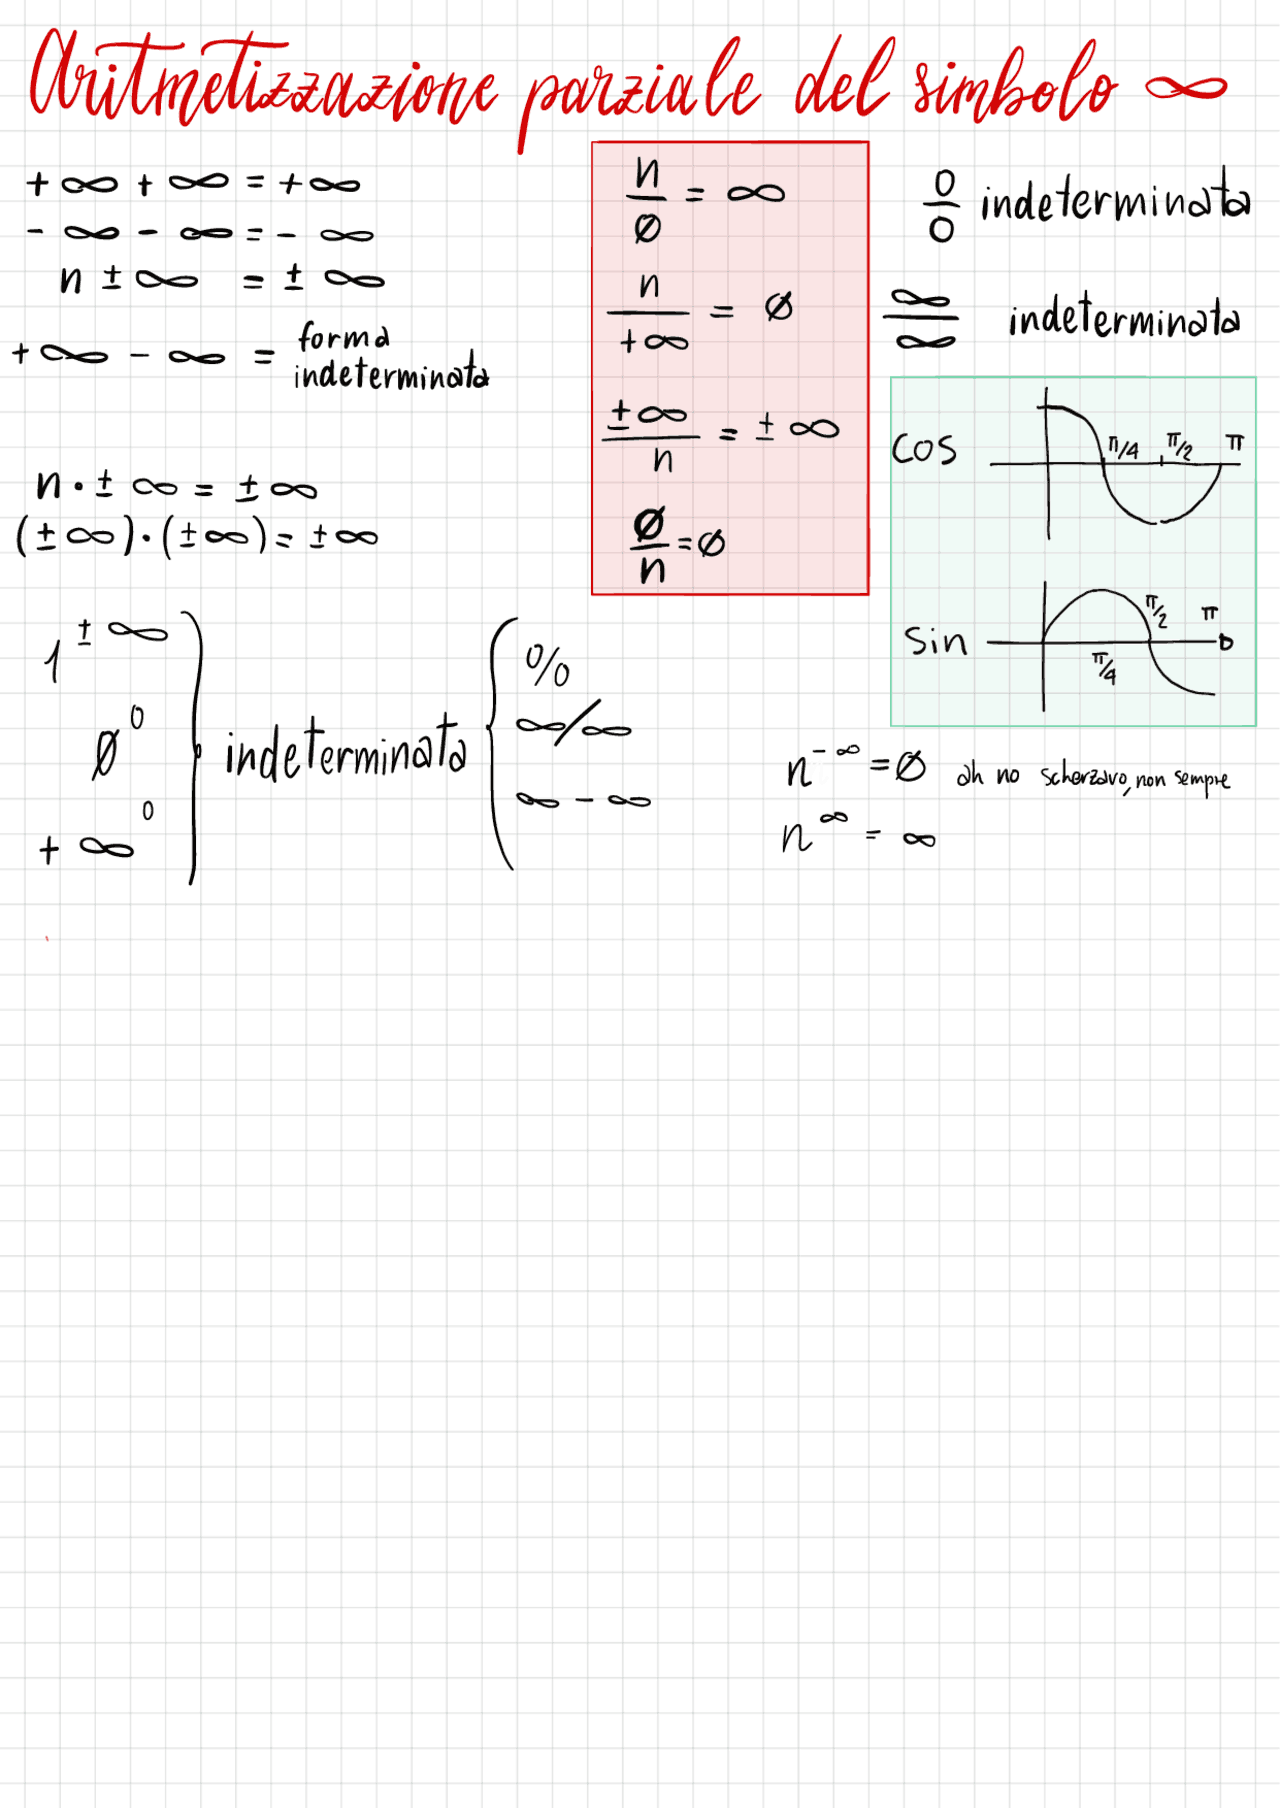 Aritmetizzazione parziale del simbolo ∞
+ ∞ + ∞ = + ∞
- ∞ - ∞ = - ∞
n ± ∞ = ± ∞
+ ∞ - ∞ = forma indeterminata
n · ± ∞ = ± ∞
(± ∞) · (± ∞) = ± ∞
n/∅ = ∞
n/+∞ = ∅
± ∞/n = ± ∞
∅/n = ∅
0/0 indeterminata
∞/∞ indeterminata
cos
π/4 π/2 π
sin
π/4 π/2 π
1^± ∞
∅^0
+ ∞^0
indeterminata
0/0
∞/∞
∞ - ∞
n^- ∞ = ∅ ah no scherzavo, non sempre
n^∞ = ∞